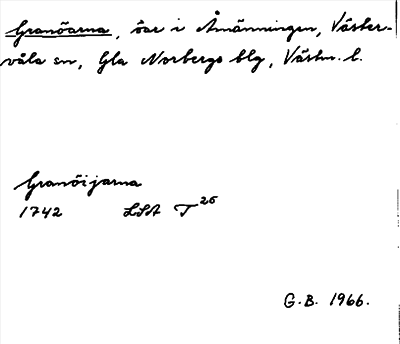 Granöarna, öar i Åmänningen, Väster-
våla sn, Gla Norbergs blg, Västm. l.
Granöijarna
1742 LSA T 26
G.B. 1966.